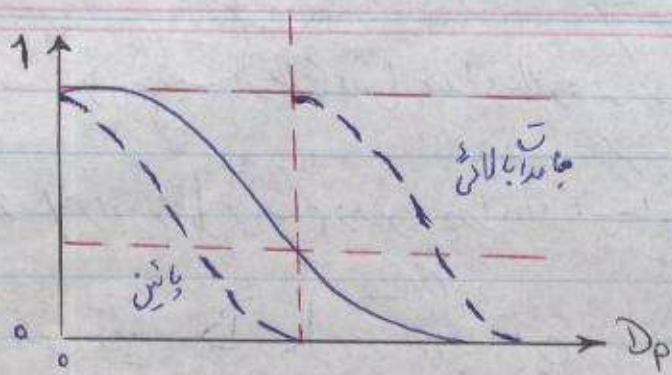 1
جامدات بالائی
پائین
0
Dp
0